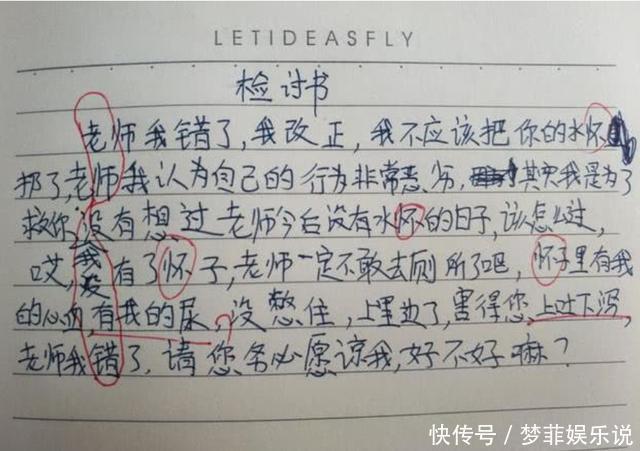 LETIDEASFLY
检讨书
老师我错了，我改正，我不应该把你的水怀
扔了，老师我认为自己的行为非常恶劣，其实我是为了
救你，没有想过老师今后没有水怀的日子，该怎么过，
哎，我没有了怀子，老师一定不敢去厕所了吧，怀子里有我
的心血，有我的尿，没憋住，上里边了，害得您上吐下泻，
老师我错了，请您务必愿谅我，好不好嘛？
快传号／梦菲娱乐说